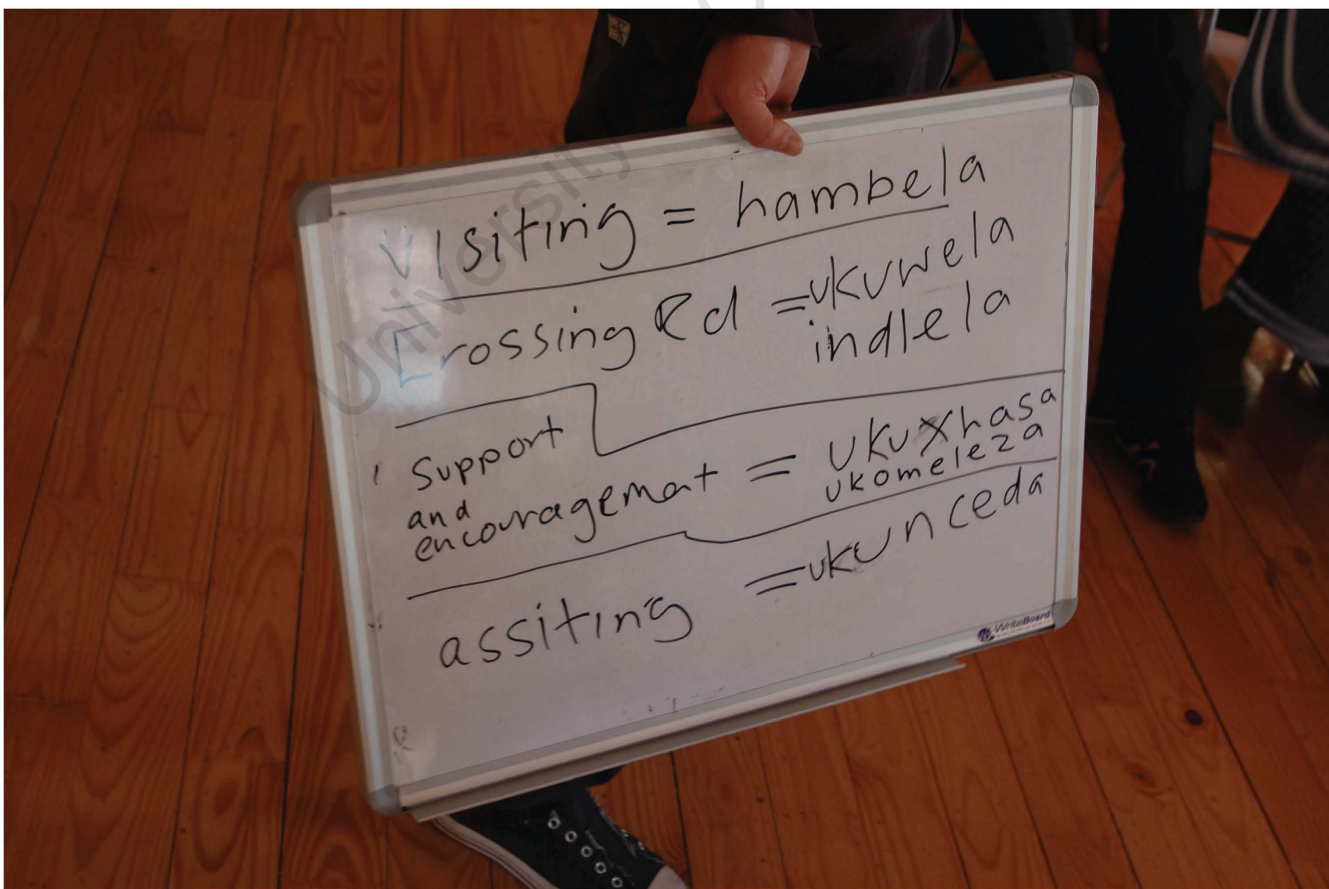 University
Visiting = hambela
Crossing Rd = ukuwela
indlela
Support
and
encouragemat = ukuxhasa
ukomeleza
assiting = ukunceda
WriteBoard